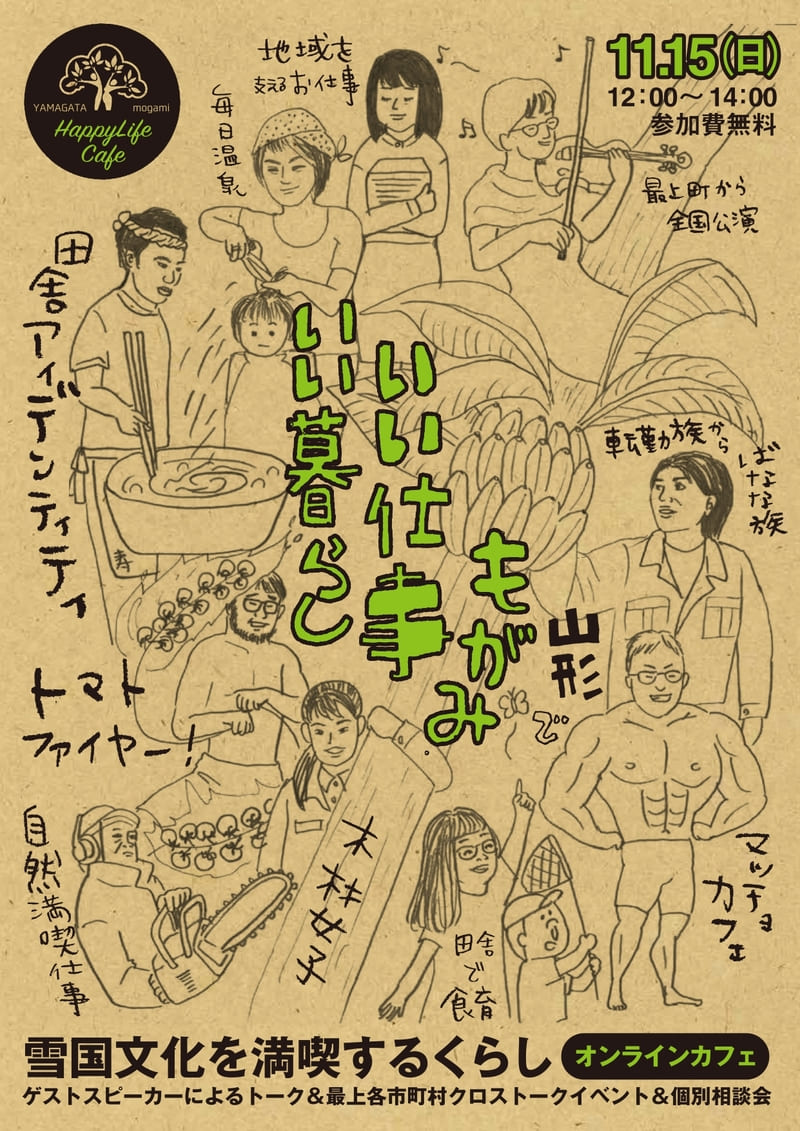 YAMAGATA mogami
HappyLife
Cafe
11.15(日)
12:00～14:00
参加費無料
地域を
支えるお仕事
毎日温泉
最上町から
全国公演
田舎アイデンティティ
いい暮らし
いい仕事
もがみ
山形
で
転勤族から
ばなな族
寿
トマト
ファイヤー!
木材女子
自然満喫仕事
田舎で
食育
マッチョ
カフェ
雪国文化を満喫するくらし
オンラインカフェ
ゲストスピーカーによるトーク&最上各市町村クロストークイベント&個別相談会